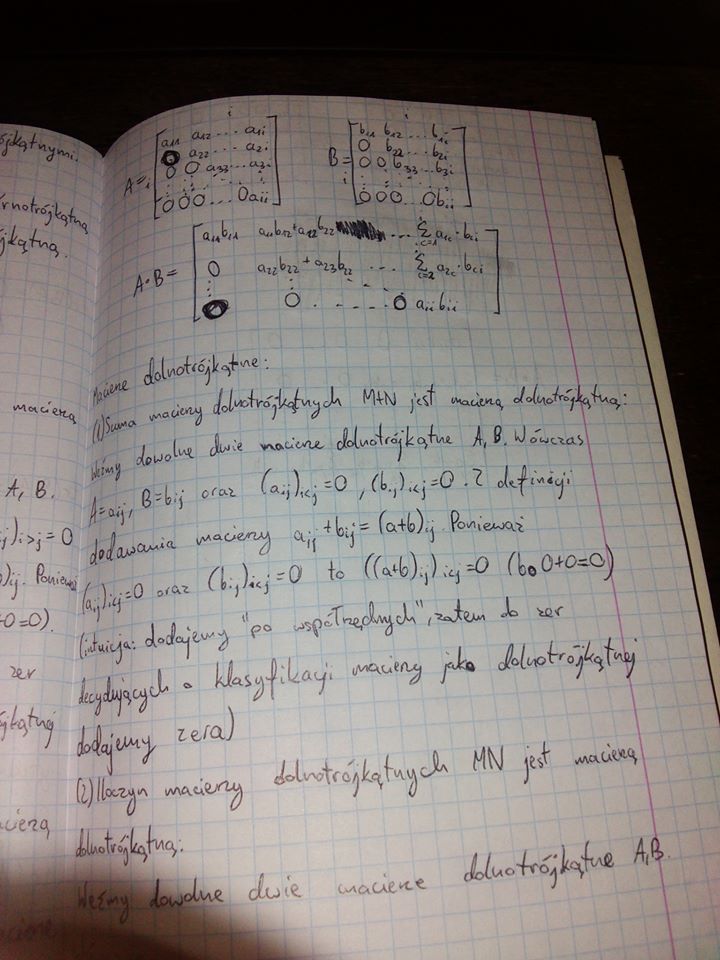 ójkątnymi.
órnotrójkątną
jkątną.
macierzą
A, B.
j)i>j = 0
)ij. Ponieważ
+0=0).
zer
ójkątnej
acierzą
i
a11 a12 ... a1i
0 a22 ... a2i
A = i 0 0 a33 ... a3i
0 0 0 ... 0 aii
i
b11 b12 ... b1i
0 b22 ... b2i
B = 0 0 b33 ... b3i
i 0 0 0 ... 0 bii
a11b11 a11b12+a12b22 ... Σ c=1 i a1c·bci
A·B = 0 a22b22+a23b22 ... Σ c=2 i a2c·bci
0 0 . - - - . 0 aii bii
Macierze dolnotrójkątne:
(1) Suma macierzy dolnotrójkątnych M+N jest macierzą dolnotrójkątną:
Weźmy dowolne dwie macierze dolnotrójkątne A, B. Wówczas
A=aij, B=bij oraz (aij)i<j=0, (bij)i<j=0. Z definicji
dodawania macierzy aij+bij=(a+b)ij. Ponieważ
(aij)i<j=0 oraz (bij)i<j=0 to ((a+b)ij)i<j=0 (bo 0+0=0)
(intuicja: dodajemy "po współrzędnych", zatem do zer
decydujących o klasyfikacji macierzy jako dolnotrójkątnej
dodajemy zera)
(2) Iloczyn macierzy dolnotrójkątnych MN jest macierzą
dolnotrójkątną:
Weźmy dowolne dwie macierze dolnotrójkątne A, B.